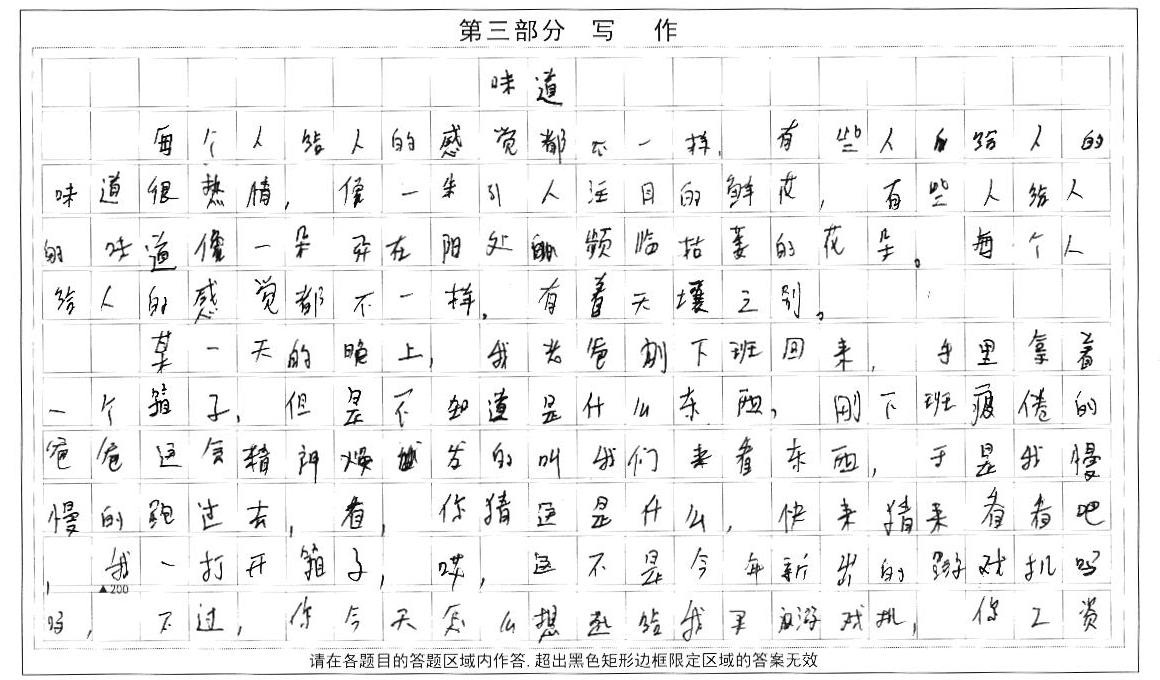 第三部分 写 作
味道
每个人给人的感觉都不一样，有些人给人的
味道很热情，像一朵引人注目的鲜花，有些人给人
的味道像一朵弃在阴处频临枯萎的花朵。每个人
给人的感觉都不一样，有着天壤之别。
某一天的晚上，我老爸刚下班回来，手里拿着
一个箱子，但是不知道是什么东西，刚下班疲倦的
爸爸这会精神焕发的叫我们来看东西，于是我慢
慢的跑过去，看，你猜这是什么，快来猜来看看吧
，我一打开箱子，哎，这不是今年新出的游戏机吗
▲200
吗，不过，你今天怎么想到给我买游戏机，你工资
请在各题目的答题区域内作答，超出黑色矩形边框限定区域的答案无效